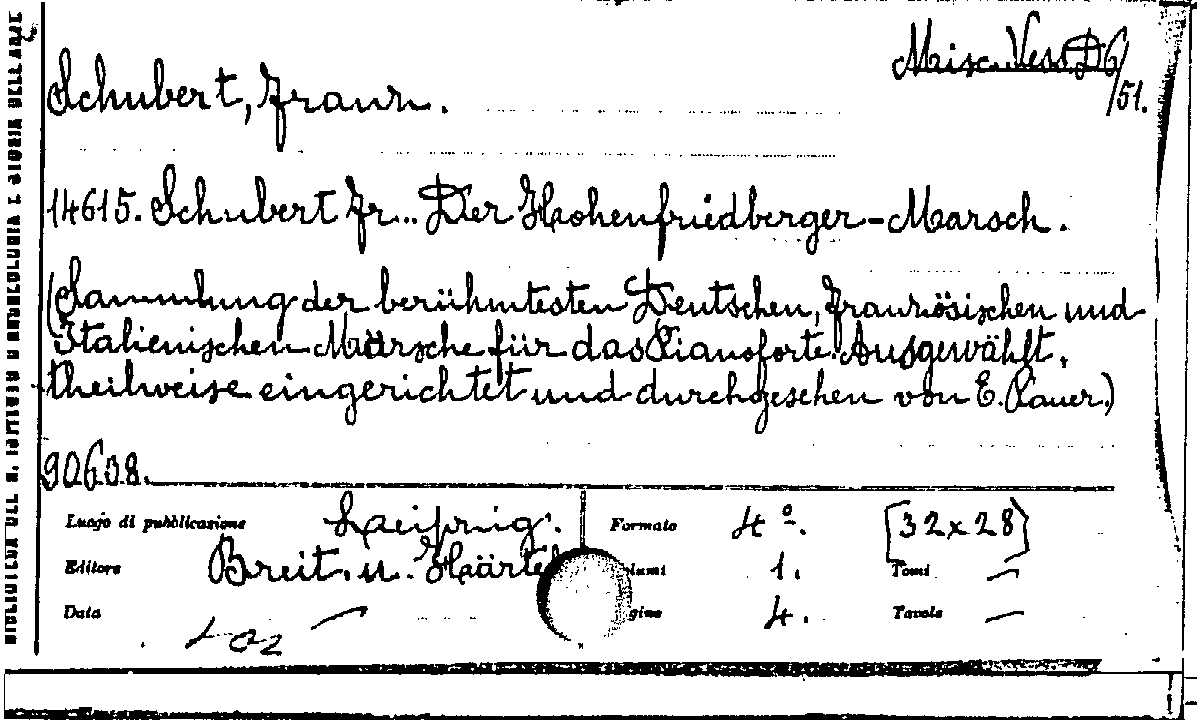 Misc. Vess. D6/51.
Schubert, Franz.
14615. Schubert Fr... Der Hohenfriedberger-Marsch.
(Sammlung der berühmtesten Deutschen, Französischen und
Italienischen Märsche für das Pianoforte. Ausgewählt,
theilweise eingerichtet und durchgesehen von E. Pauer.)
90608.
Luogo di pubblicazione Leipzig. Formato 4º. [32x28]
Editore Breit. u. Härtel 1. Tomi —
Data — 4. Tavole —
BIBLIOTECA DEL R. ISTITUTO DI ARCHEOLOGIA E STORIA DELL'ARTE